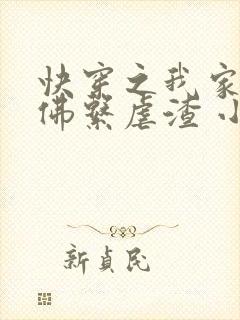 快穿之我家
佛繫虐渣小
新貞民